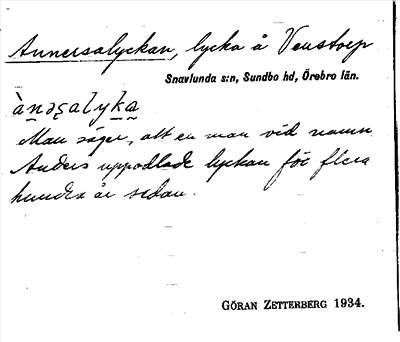 Annersalyckan, lycka å Venstorp
Snavlunda s:n, Sundbo hd, Örebro län.
Man säger, att en man vid namn
Anders uppodlade lyckan för flera
hundra år sedan.
GÖRAN ZETTERBERG 1934.